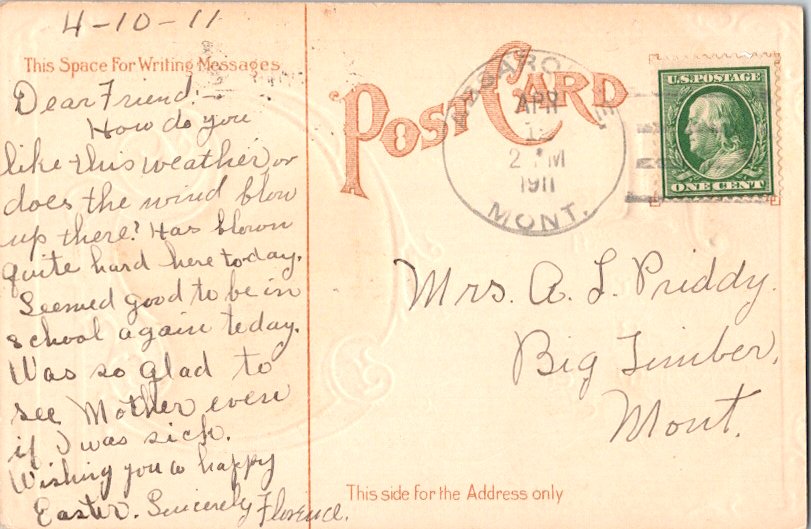 4-10-11
This Space For Writing Messages
Dear Friend:-
How do you
like this weather or
does the wind blow
up there? Has blown
quite hard here today.
Seemed good to be in
school again today.
Was so glad to
see Mother even
if I was sick.
Wishing you a happy
Easter. Sincerely Florence.
POST CARD
APR
2 PM
1911
MONT.
U.S. POSTAGE
ONE CENT
Mrs. A. L. Priddy.
Big Timber,
Mont.
This side for the Address only